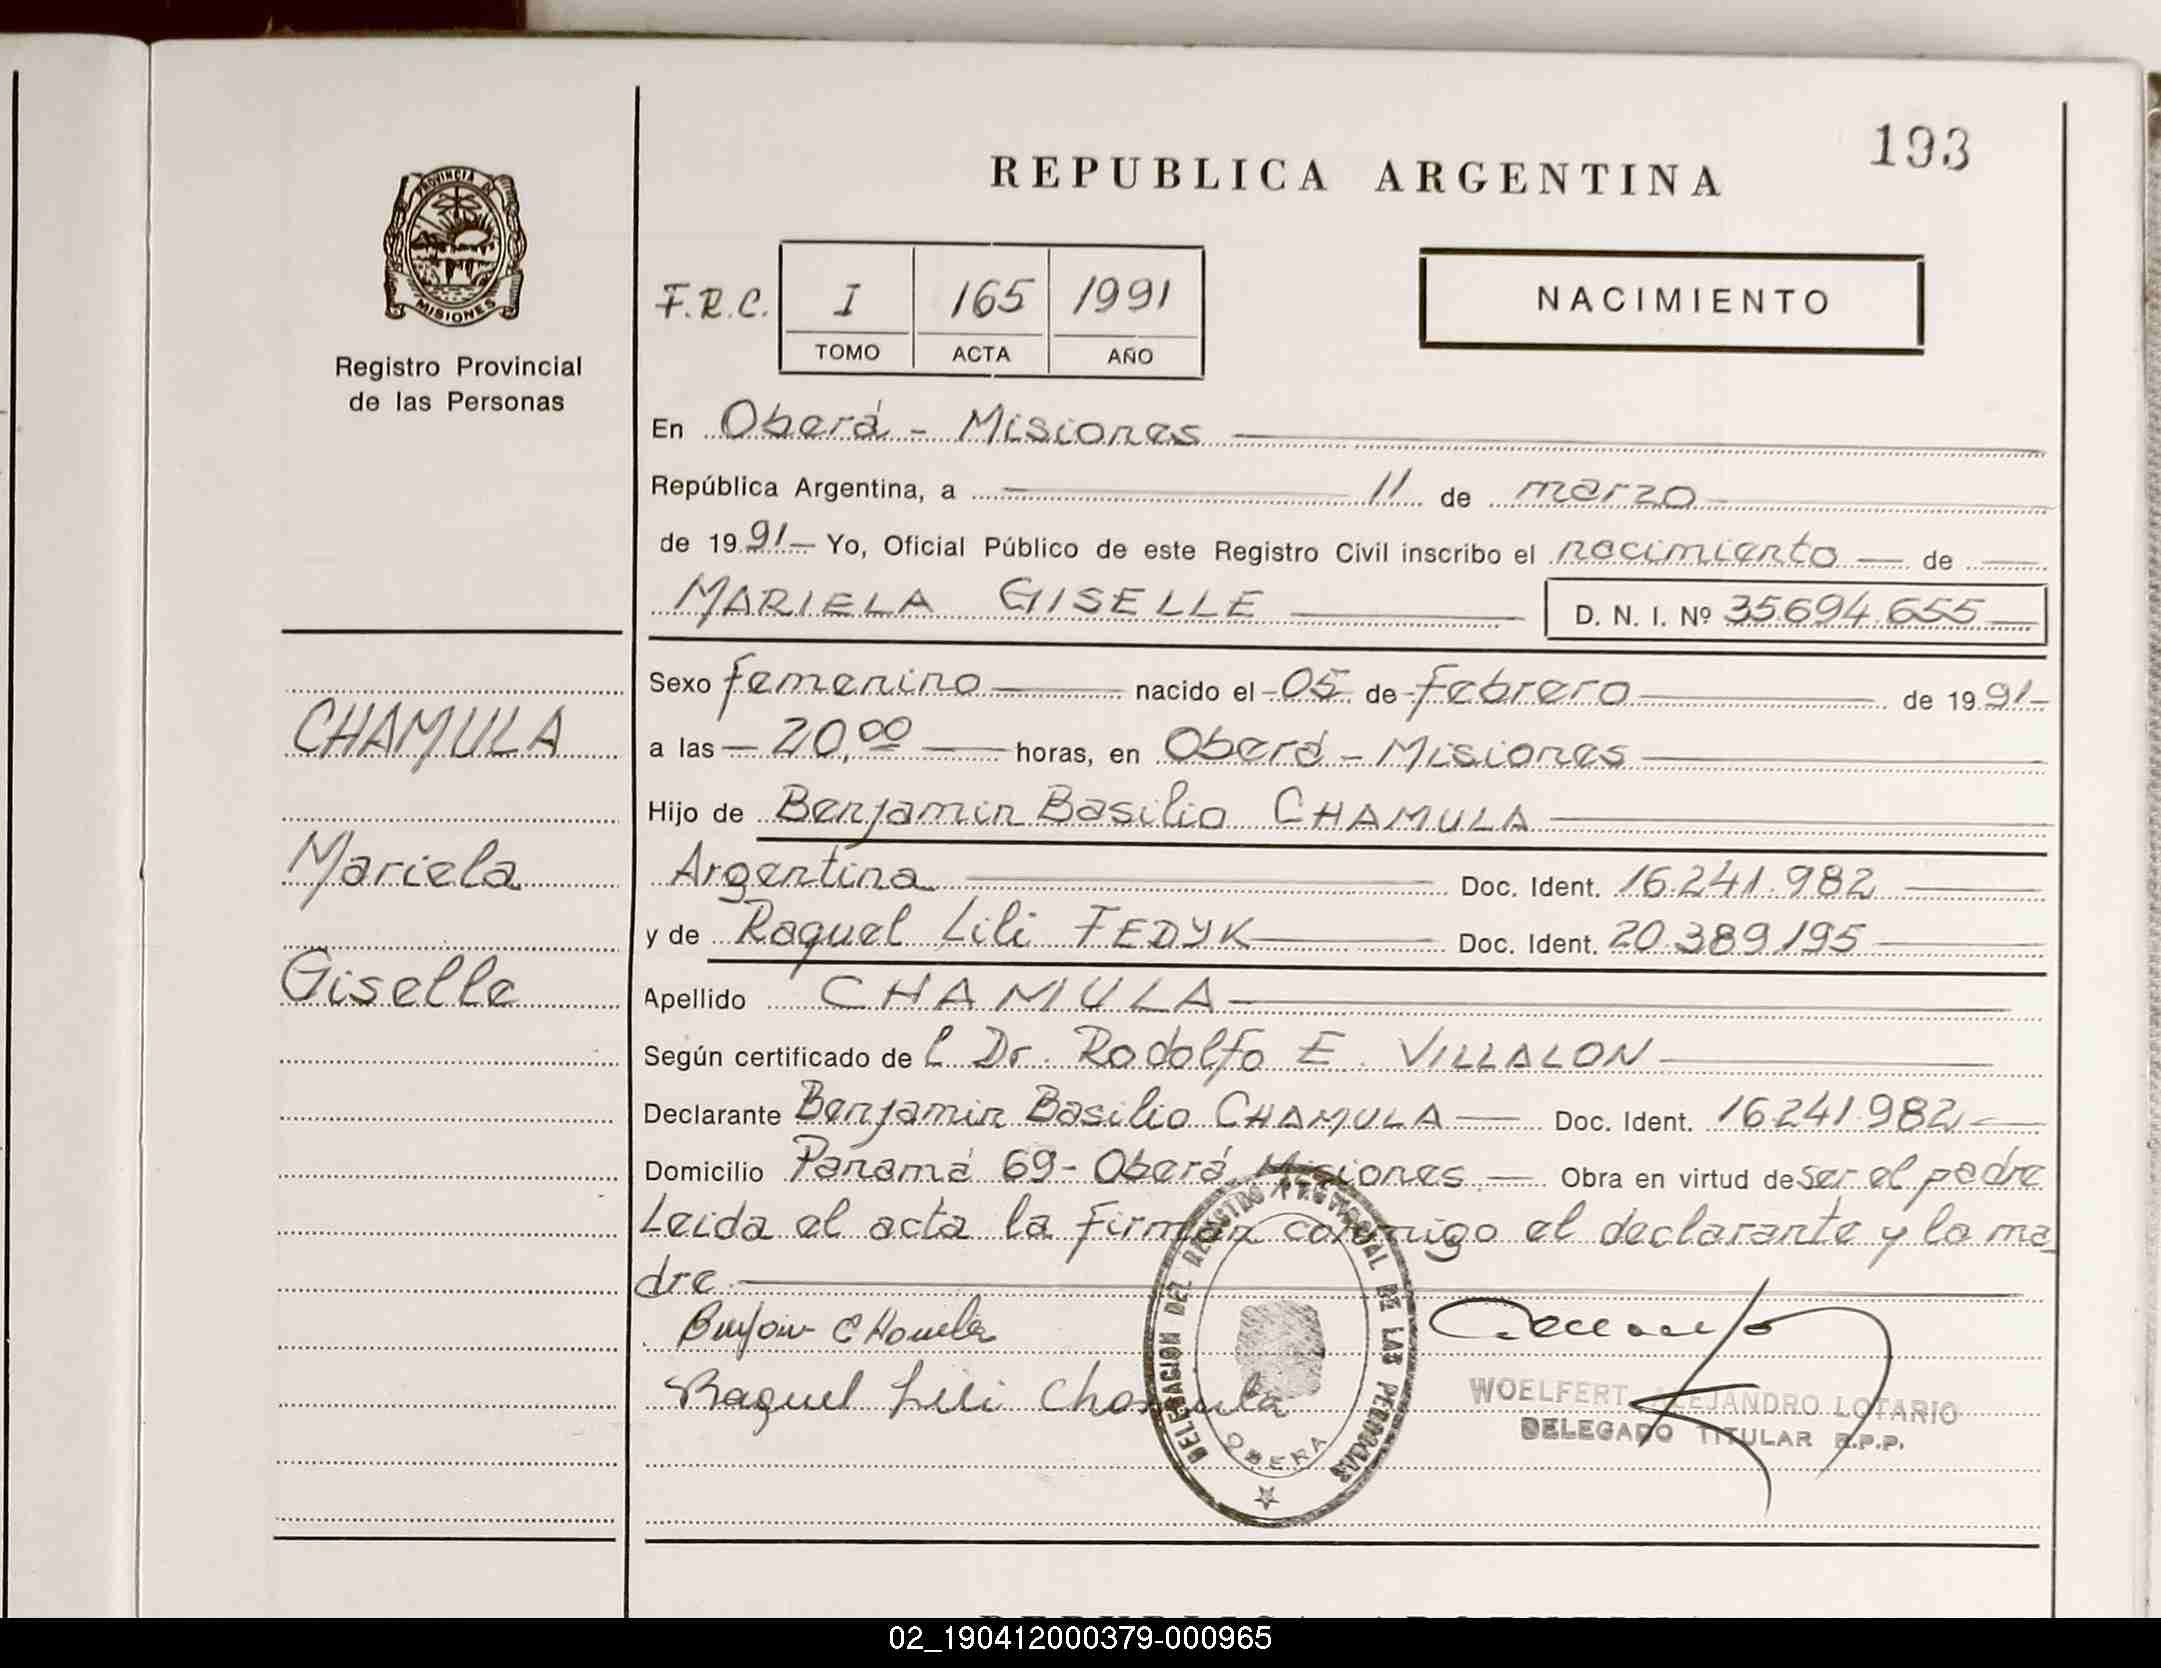 193
REPUBLICA ARGENTINA
PROVINCIA DE
MISIONES
Registro Provincial
de las Personas
F.R.C. I 165 1991
TOMO ACTA AÑO
NACIMIENTO
En Oberá - Misiones
República Argentina, a 11 de marzo
de 1991 Yo, Oficial Público de este Registro Civil inscribo el nacimiento de
MARIELA GISELLE D. N. I. Nº 35694.655
Sexo femenino nacido el 05 de febrero de 1991
a las 20,00 horas, en Oberá - Misiones
Hijo de Benjamin Basilio CHAMULA
Argentina Doc. Ident. 16.241.982
y de Raquel Lili FEDYK Doc. Ident. 20.389.195
Apellido CHAMULA
Según certificado del Dr. Rodolfo E. VILLALON
Declarante Benjamin Basilio CHAMULA Doc. Ident. 16.241.982
Domicilio Panamá 69 - Oberá Misiones Obra en virtud de ser el padre
Leida el acta la firman conmigo el declarante y la ma
dre
CHAMULA
Mariela
Giselle
Raquel Lili Chamula
DELEGACION DEL REGISTRO PROVINCIAL DE LAS PERSONAS
OBERA
WOELFERT ALEJANDRO LOTARIO
DELEGADO TITULAR R.P.P.
02_190412000379-000965